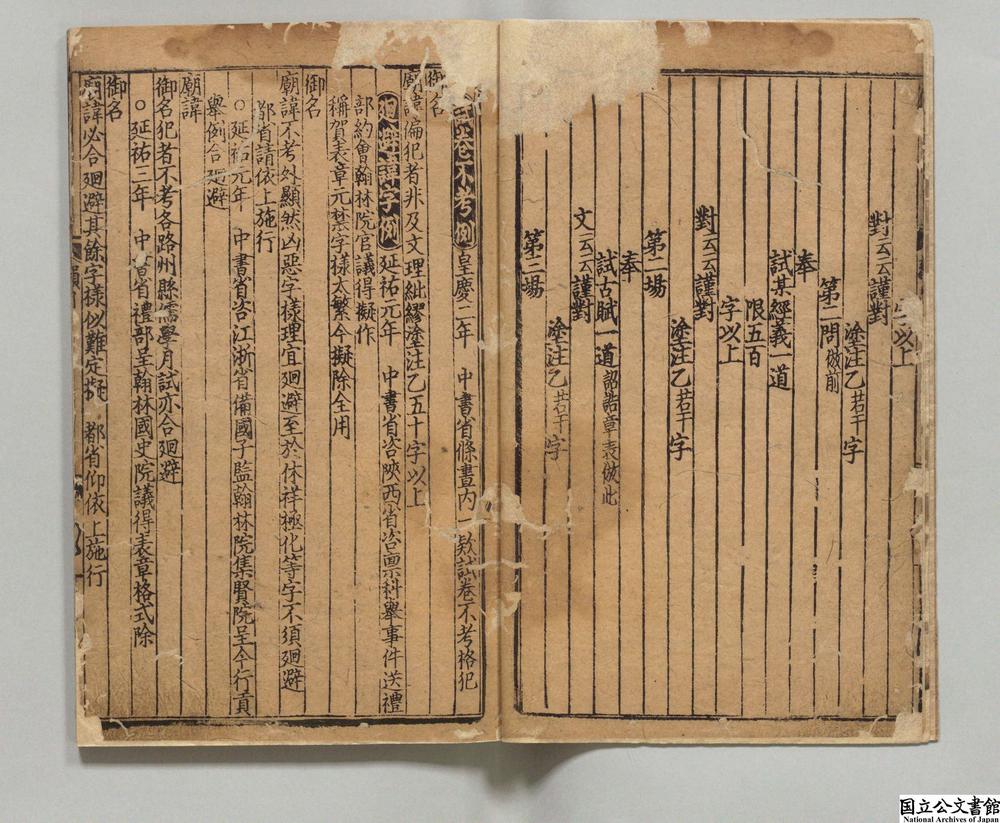 字以上
對云云謹對
塗注乙若干字
第二問倣前
奉
試某經義一道
限五百
字以上
對云云謹對
塗注乙若干字
第二場
奉
試古賦一道詔誥章表倣此
文云云謹對
塗注乙若干字
第三場
試卷不考例 皇慶二年 中書省條畫內一款試卷不考格犯
御名
廟諱偏犯者非及文理紕繆塗注乙五十字以上
廻避諱字例 延祐元年 中書省咨陝西省咨稟科舉事件送禮
部約會翰林院官議得擬作
稱賀表章元禁字樣太繁今擬除全用
御名
廟諱不考外顯然凶惡字樣理宜廻避至於休祥極化等字不須廻避
都省請依上施行
○延祐元年 中書省咨江浙省備國子監翰林院集賢院呈今行貢
舉例合廻避
廟諱
御名犯者不考各路州縣儒學月試亦合廻避
○延祐三年 中書省禮部呈翰林國史院議得表章格式除
御名
廟諱必合廻避其餘字樣似難定擬 都省仰依上施行
国立公文書館
National Archives of Japan